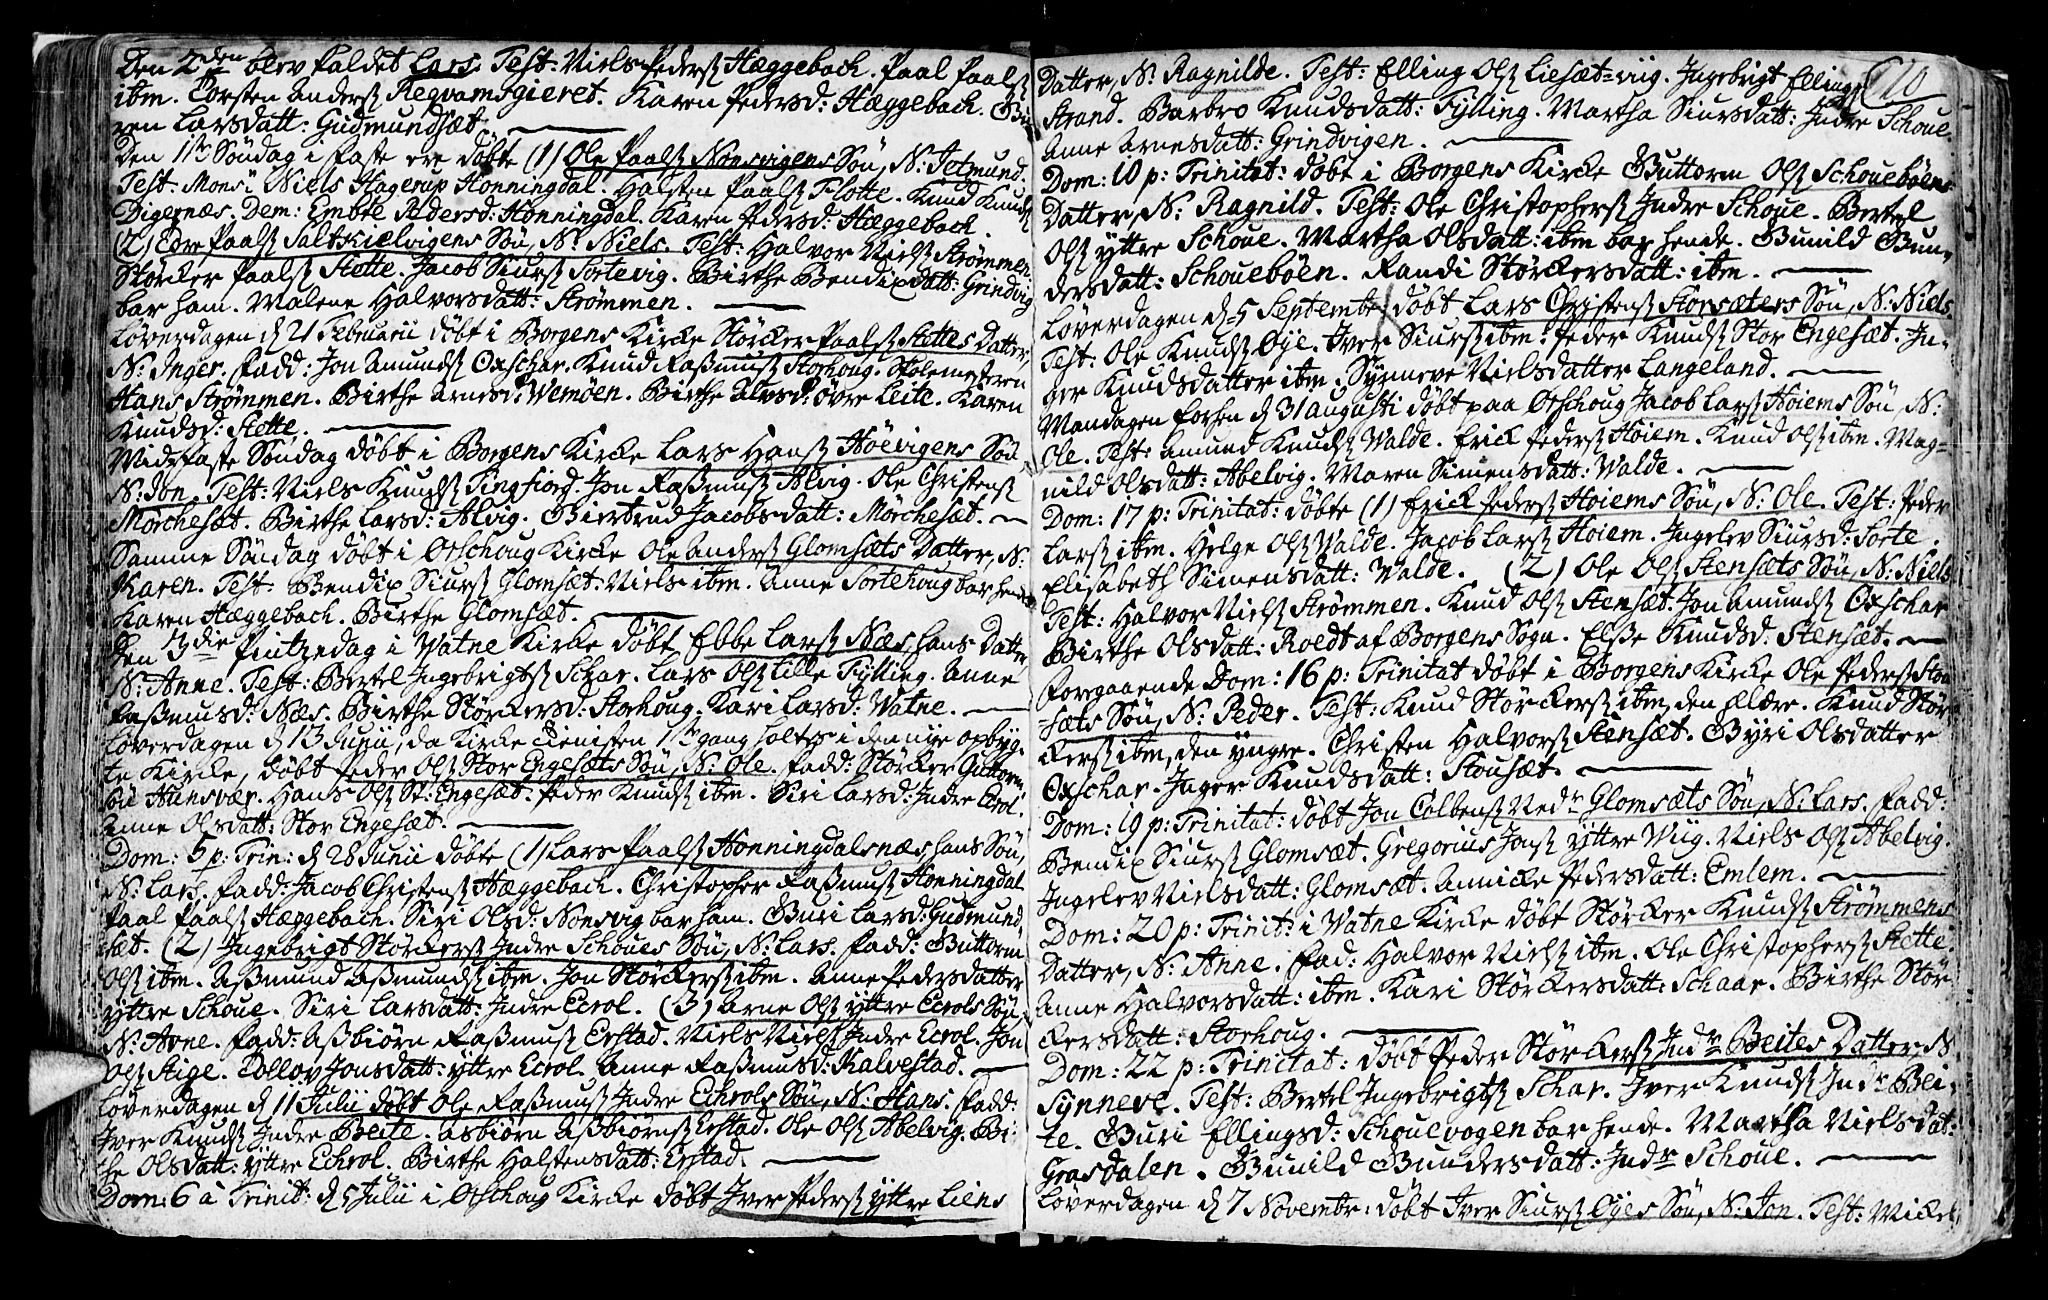 Den 2den blev kaldet Lars. Test: Niels Peders Hæggebach. Paal Paals
ibm. Torsten Anders Regvamsgieret. Karen Pedersd: Hæggebach. Gu
ren Larsdatt: Gudmundsæt.
Den 1ste Søndag i Faste ere døbte (1) Ole Paals Nonsvigens Søn, N: Jetmund.
Test. Monsr Niels Hagerup Honningdal. Halsten Paals Flotte. Knud Knuds
Digernæs. Dem: Embte Aldersd: Honningdal. Karen Pedersd: Hæggebach.
(2) Edre Paals Saltkielvigens Søn, N: Niels. Test: Halvor Niels Strømmen
Størcker Paals Stette. Jacob Siurs Sortevig. Birthe Bendixdatt: Grindvig
bar ham. Malene Halvorsdatt: Strømmen.
Løverdagen d 21 Februarii døbt i Borgens Kircke Størcker Paals Stettes Datter,
N: Inger. Fadd: Jon Amunds Oxschar. Knud Rasmus Storhoug. Skolemesteren
Hans Strømmen. Birthe Arnesd: Wemøen. Birthe Alvsd: øvre Leite. Karen
Knudsd: Stette.
Midfaste Søndag døbt i Borgens Kircke Lars Hans Høevigens Søn
N: Jon. Test: Niels Knuds Tingfiord. Jon Rasmus Alvig. Ole Christens
Mørchesæt. Birthe Larsd: Alvig. Giertrud Jacobsdatt: Mørchesæt.
Samme Søndag døbt i Orschoug Kircke Ole Anders Glomsæts Datter, N:
Karen. Test: Bendix Siurs Glomsæt. Niels ibm. Anne Sortehoug bar hende
Karen Hæggebach. Birthe Glomsæt.
Den 3die Pintzedag i Watne Kircke døbt Ebbe Lars Næs, hans Datter
N: Anne. Test: Bertel Ingebrigts Schar. Lars Ols Lille Fylling. Anne
Rasmusd: Næs. Birthe Størckersd: Storhoug. Kari Larsd: Watne.
Løverdagen d 13 Junii, da Kircke Tienisten 1ste gang holtes i den nye opbyg-
te Kircke, døbt Peder Ols Stor Engesætts Søn, N: Ole. Fadd: Størcker Guttorm
søn Hunsvær. Hans Ols St: Engesæt. Peder Knuds ibm. Siri Larsd: Indre Ecrol.
Anne Olsdatt: Stor Engesæt.
Dom: 5 p: Trin: d 28 Junii døbte (1) Lars Paals Honningdalsnæs, hans Søn,
N: Lars. Fadd: Jacob Christens Hæggebach. Christopher Rasmus Honningdal
Paal Paals Hæggebach. Siri Olsd: Nonsvig bar ham. Guri Larsd: Gudmund,
sæt. (2) Ingebrigt Størckers Indre Schoues Søn, N: Lars. Fadd: Guttorm
Ols ibm. Asmund Asmunds ibm. Jon Størckers ibm. Anne Pedersdatter
yttre Schoue. Siri Larsdatt: Indre Ecrol. (3) Arne Ols yttre Ecrols Søn,
N: Arne. Fadd: Asbiørn Rasmus Erstad. Niels Niels Indre Ecrol. Jon
Ols Stige. Tollov Jonsdatt: yttre Ecrol. Anne Rasmusd: Kalvestad.
Løverdagen d 11 Julii døbt Ole Rasmus Indre Echrols Søn, N: Hans. Fadd:
Iver Knuds Indre Beite. Asbiørn Asbiørns Erstad. Ole Ols Abelvig. Bi-
the Olsdatt: yttre Echrol. Birthe Halstensdatt: Erstad.
Dom: 6 à Trinit: d 5 Julii i Orschoug Kircke døbt Iver Peders yttre Liens
110
Datter, N: Ragnilde. Test: Elling Ols Liesæt-viig. Ingebrigt Ellings
Strand. Barbro Knudsdatt: Fylling. Martha Siursdatt: Indre Schoue
Anne Arnesdatt: Grindvigen.
Dom: 10 p: Trinitat: døbt i Borgens Kirke Guttorm Ols Schouebøens
Datter, N: Ragnild. Test: Ole Christophers Indre Schoue. Bertel
Ols yttre Schoue. Martha Olsdatt: ibm bar hende. Gunild Gun-
dersdatt: Schouebøen. Randi Størckersdatt: ibm.
Løverdagen d. 5 Septembr døbt Lars Christens Storsæters Søn, N: Niels.
Test: Ole Knuds Øye. Iver Siurs ibm. Peder Knuds Stor Engesæt. In-
ger Knudsdatter ibm. Synneve Nielsdatter Langeland.
Mandagen forhen d 31 Augusti døbt paa Orschoug Jacob Lars Høiems Søn, N:
Ole. Test: Amund Knuds Walde. Erick Peders Høiem. Knud Ols ibm. Mag-
nild Olsdatt: Abelvig. Maren Simensdatt: Walde.
Dom: 17 p: Trinitat: døbte (1) Erick Peders Høiems Søn, N: Ole. Test: Peder
Lars ibm. Helge Ols Walde. Jacob Lars Høiem. Ingelev Siursd: Sorte.
Elisabeth Simensdatt: Walde. (2) Ole Ols Stensæts Søn, N: Niels
Test: Halvor Niels Strømmen. Knud Ols Stensæt. Jon Amunds Oxschar
Birthe Olsdatt: Roedt af Borgens Sogn. Else Knudsd: Stensæt.
Foregaaende Dom: 16 p: Trinitat døbt i Borgens Kircke Ole Peders Stou
sæts Søn, N: Peder. Test: Knud Størckers ibm, den Eldre. Knud Stør
kers ibm, den yngre. Christen Halvors Stensæt. Gyri Olsdatter
Oxschar. Inger Knudsdatt: Stousæt.
Dom: 19 p: Trinitat: døbt Jon Colbens Nedre Glomsæts Søn, N: Lars. Fadd:
Bendix Siurs Glomsæt. Gregorius Jons yttre Wiig. Niels Ols Abelvig.
Ingelev Nielsdatt: Glomsæt. Annicke Pedersdatt: Emlem.
Dom: 20 p: Trinit: i Watne Kircke døbt Størcker Knuds Strømmens
Datter, N: Anne. Fad: Halvor Niels ibm. Ole Christophers Stette.
Anne Halvorsdatt: ibm. Kari Størckersdatt: Schaar. Birthe Stør
kersdatt: Storhoug.
Dom: 22 p: Trinitat: døbt Peder Størckers Indre Beites Datter, N
Synneve. Test: Bertel Ingebrigts Schar. Iver Knuds Indr Bei-
te. Guri Ellingsd: Schouevogen bar hende. Martha Nielsdat:
Grasdalen. Gunild Gundersdatt: Indre Schoue.
Løverdagen d 7 Novembr: døbt Iver Siurs Øyes Søn, N: Jon. Test: Mickel